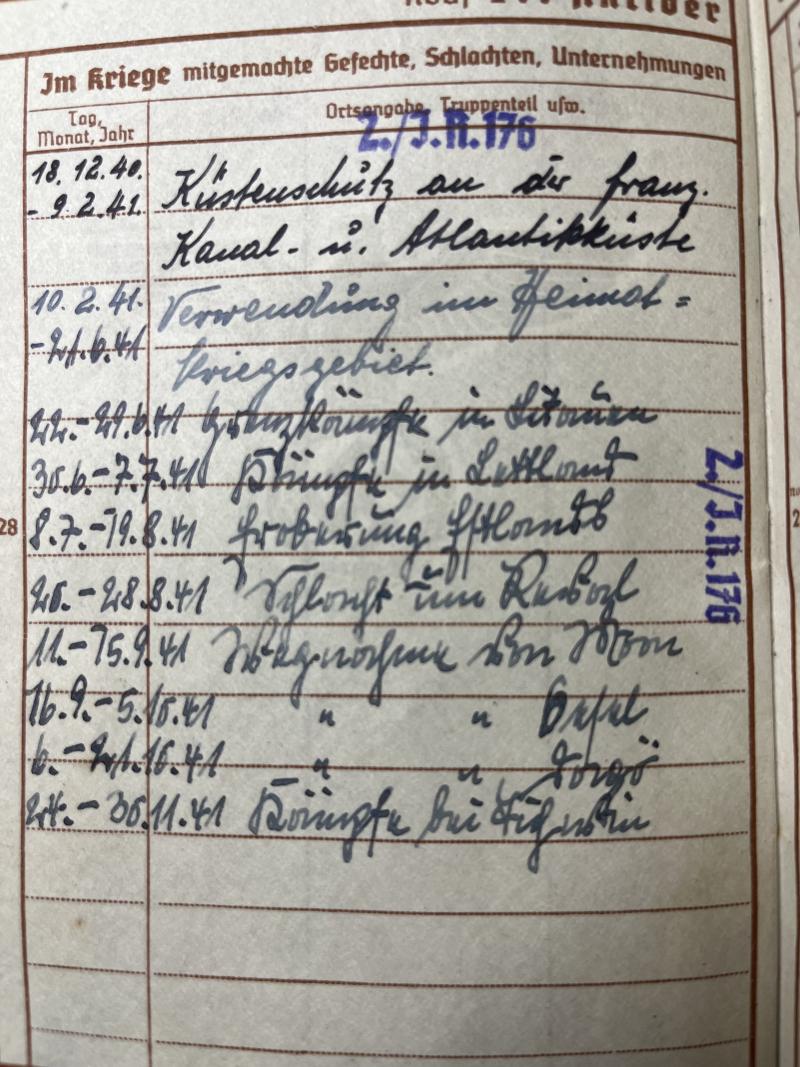 Im Kriege mitgemachte Gefechte, Schlachten, Unternehmungen
Tag, Monat, Jahr
Ortsangabe, Truppenteil usw.
2./J.R.176
18.12.40. Küstenschutz an der franz.
- 9.2.41. Kanal- u. Atlantikküste
10.2.41. Verwendung im Heimat=
-21.6.41 kriegsgebiet.
22.-29.6.41 Grenzkämpfe in Litauen
30.6.-7.7.41 Kämpfe in Lettland
8.7.-19.8.41 Eroberung Estlands
20.-28.8.41 Schlacht um Reval
11.-15.9.41 Wegnahme von Moon
16.9.-5.10.41 " " Oesel
6.-21.10.41 " " Dagö
24.-30.11.41 Kämpfe bei Tichwin
2./J.R.176
28